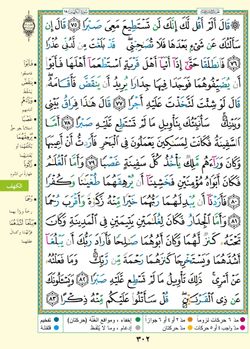 قَالَ أَلَمْ أَقُل لَّكَ إِنَّكَ لَن تَسْتَطِيعَ مَعِىَ صَبْرًا ﴿٧٥﴾ قَالَ إِن
سَأَلْتُكَ عَن شَىْءٍۭ بَعْدَهَا فَلَا تُصَٰحِبْنِى ۖ قَدْ بَلَغْتَ مِن لَّدُنِّى عُذْرًا
﴿٧٦﴾ فَٱنطَلَقَا حَتَّىٰٓ إِذَآ أَتَيَآ أَهْلَ قَرْيَةٍ ٱسْتَطْعَمَآ أَهْلَهَا فَأَبَوْا۟ أَن
يُضَيِّفُوهُمَا فَوَجَدَا فِيهَا جِدَارًا يُرِيدُ أَن يَنقَضَّ فَأَقَامَهُۥ ۖ
قَالَ لَوْ شِئْتَ لَتَّخَذْتَ عَلَيْهِ أَجْرًا ﴿٧٧﴾ قَالَ هَٰذَا فِرَاقُ بَيْنِى
وَبَيْنِكَ ۚ سَأُنَبِّئُكَ بِتَأْوِيلِ مَا لَمْ تَسْتَطِع عَّلَيْهِ صَبْرًا ﴿٧٨﴾ أَمَّا
ٱلسَّفِينَةُ فَكَانَتْ لِمَسَٰكِينَ يَعْمَلُونَ فِى ٱلْبَحْرِ فَأَرَدتُّ أَنْ أَعِيبَهَا
وَكَانَ وَرَآءَهُم مَّلِكٌ يَأْخُذُ كُلَّ سَفِينَةٍ غَصْبًا ﴿٧٩﴾ وَأَمَّا ٱلْغُلَٰمُ
فَكَانَ أَبَوَاهُ مُؤْمِنَيْنِ فَخَشِينَآ أَن يُرْهِقَهُمَا طُغْيَٰنًا وَكُفْرًا
﴿٨٠﴾ فَأَرَدْنَآ أَن يُبْدِلَهُمَا رَبُّهُمَا خَيْرًا مِّنْهُ زَكَوٰةً وَأَقْرَبَ رُحْمًا
﴿٨١﴾ وَأَمَّا ٱلْجِدَارُ فَكَانَ لِغُلَٰمَيْنِ يَتِيمَيْنِ فِى ٱلْمَدِينَةِ وَكَانَ
تَحْتَهُۥ كَنزٌ لَّهُمَا وَكَانَ أَبُوهُمَا صَٰلِحًا فَأَرَادَ رَبُّكَ أَن يَبْلُغَآ
أَشُدَّهُمَا وَيَسْتَخْرِجَا كَنزَهُمَا رَحْمَةً مِّن رَّبِّكَ ۚ وَمَا فَعَلْتُهُۥ
عَنْ أَمْرِى ۚ ذَٰلِكَ تَأْوِيلُ مَا لَمْ تَسْطِع عَّلَيْهِ صَبْرًا ﴿٨٢﴾ وَيَسْـَٔلُونَكَ
عَن ذِى ٱلْقَرْنَيْنِ ۖ قُلْ سَأَتْلُوا۟ عَلَيْكُم مِّنْهُ ذِكْرًا ﴿٨٣﴾
الكهف
٣٠٢